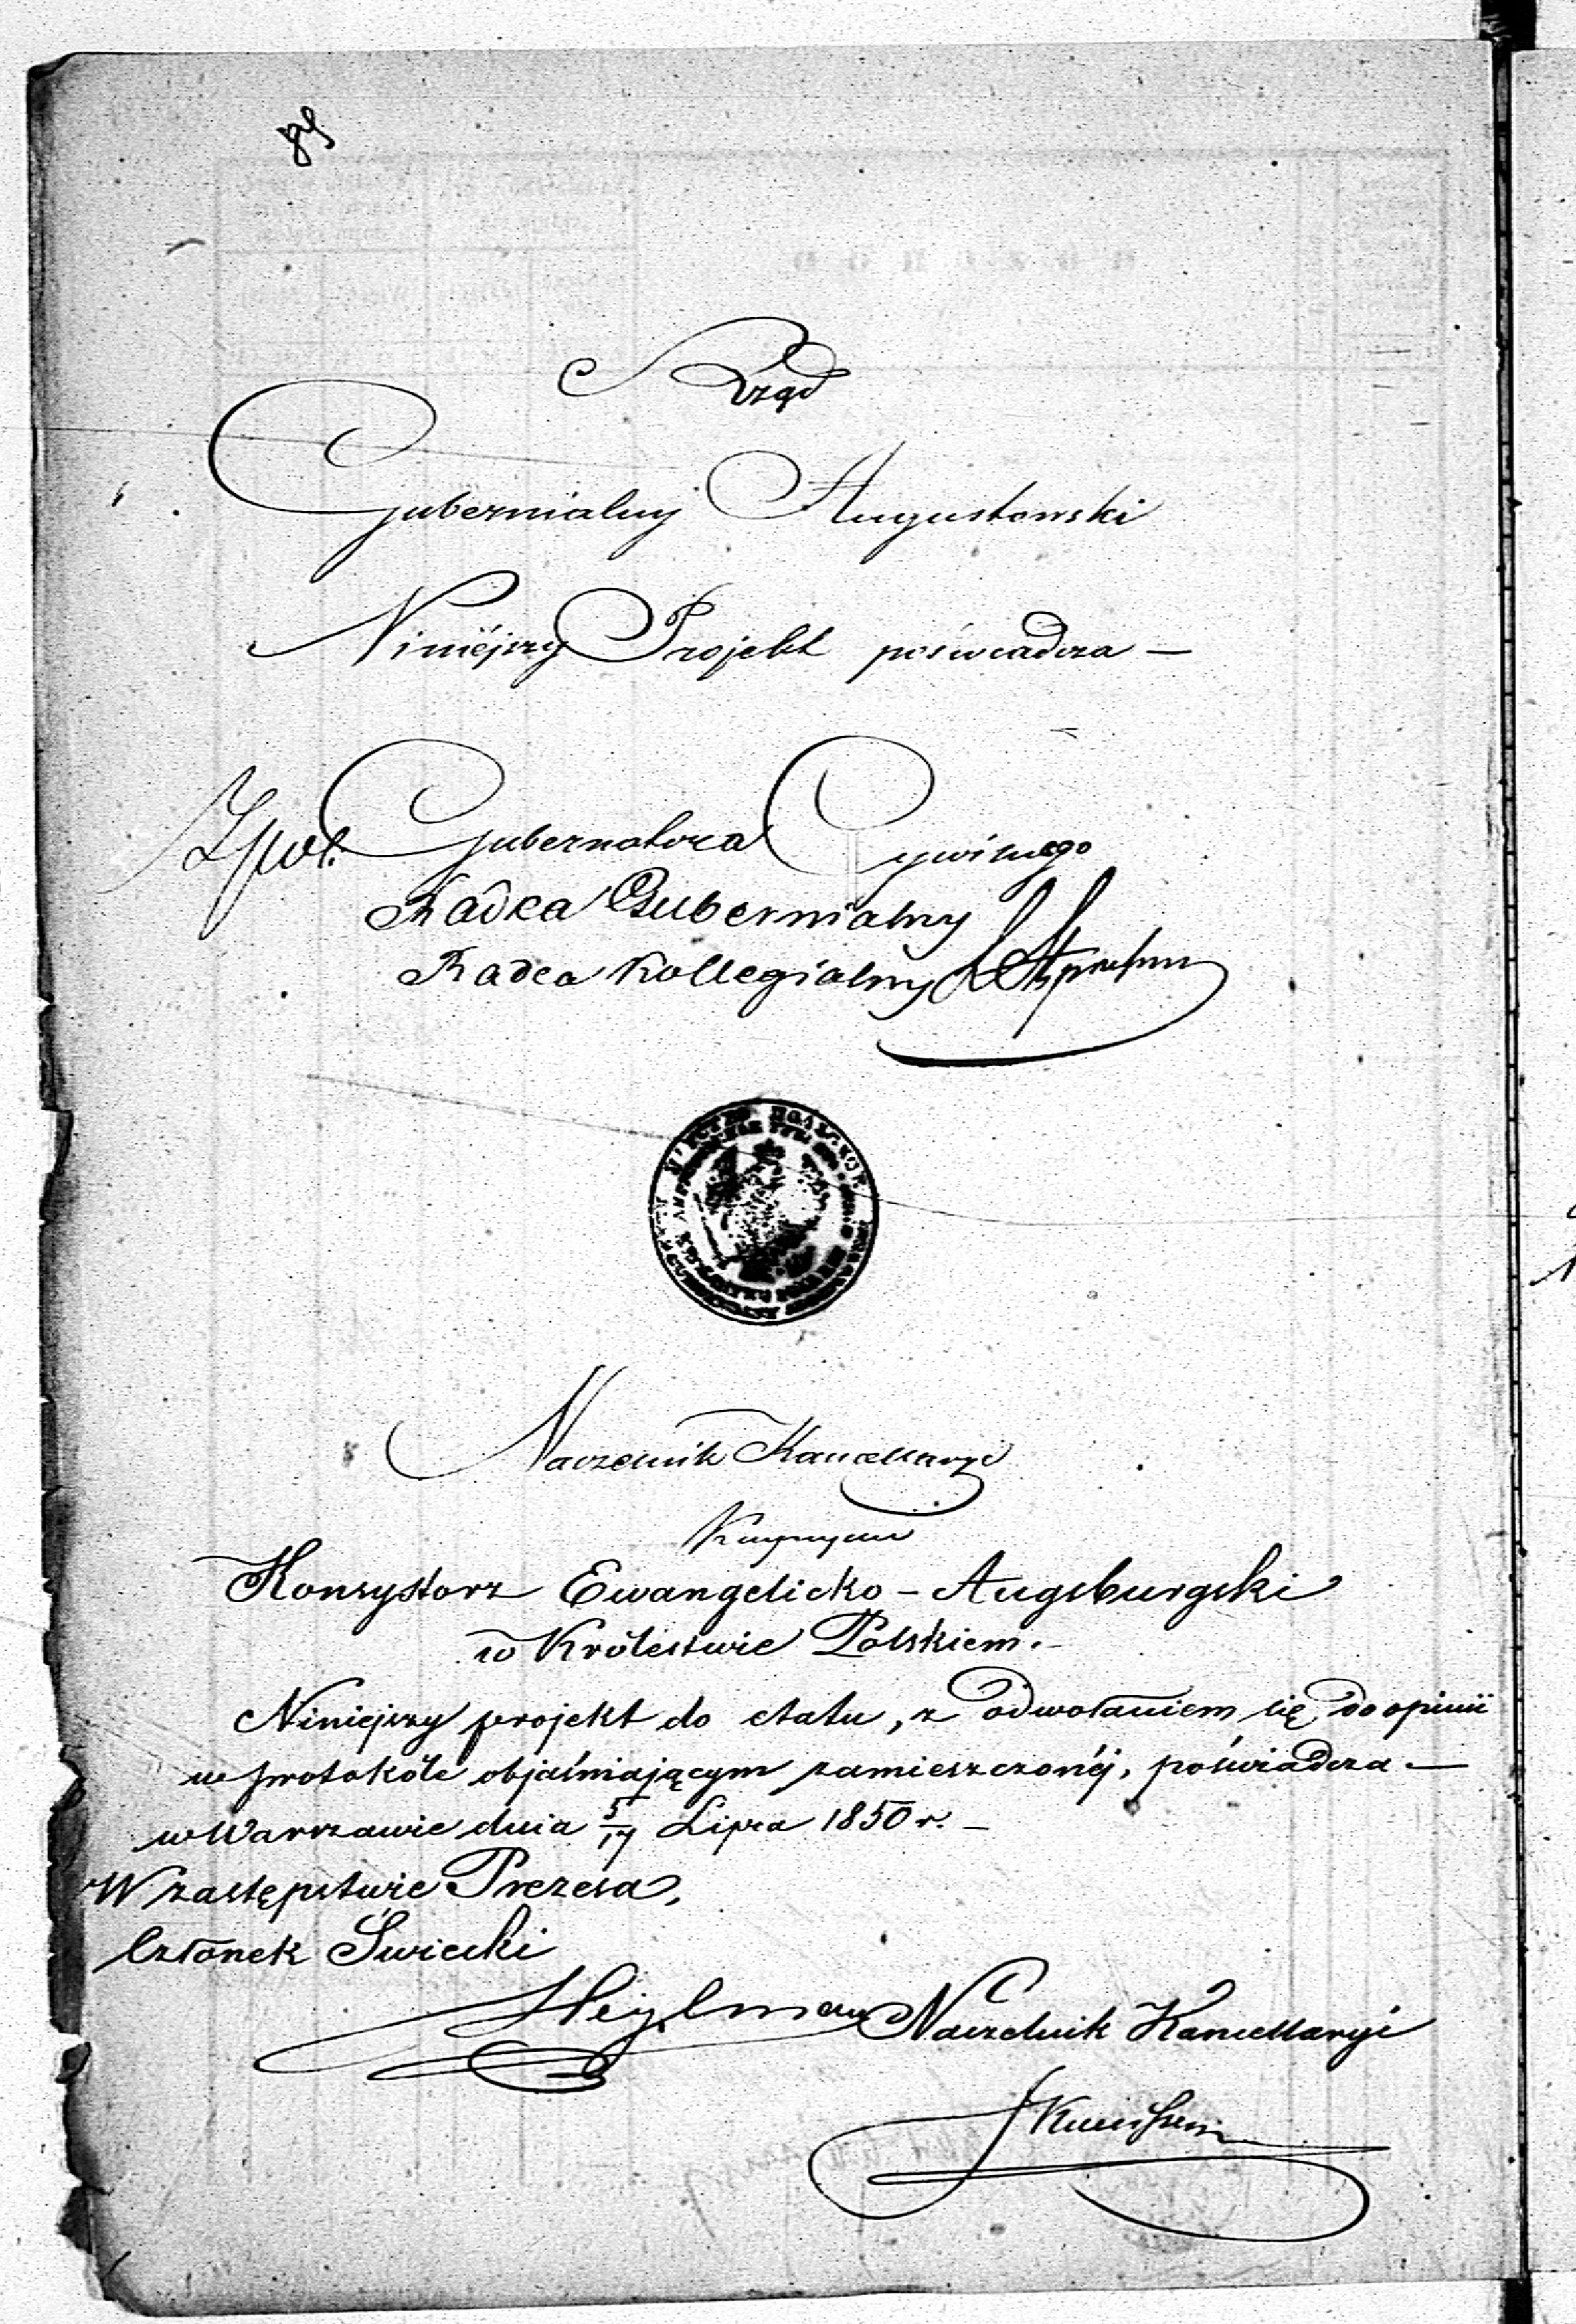 Rząd
Gubernialny Augustowski
Niniéjszy Projekt poświadcza —
Gubernatora Cywilnego
Radca Gubernialny
Radca Kollegialny
Naczelnik Kancellaryi
Konsystorz Ewangelicko - Augsburgski
w Królestwie Polskiem.
Niniejszy projekt do etatu, z odwołaniem się do opinii
w protokóle objaśniającym zamieszczonéj, poświadcza —
w Warszawie dnia 5/17 Lipca 1850 r. —
W zastępstwie Prezesa,
Członek Świecki
Heylman Naczelnik Kancellaryi